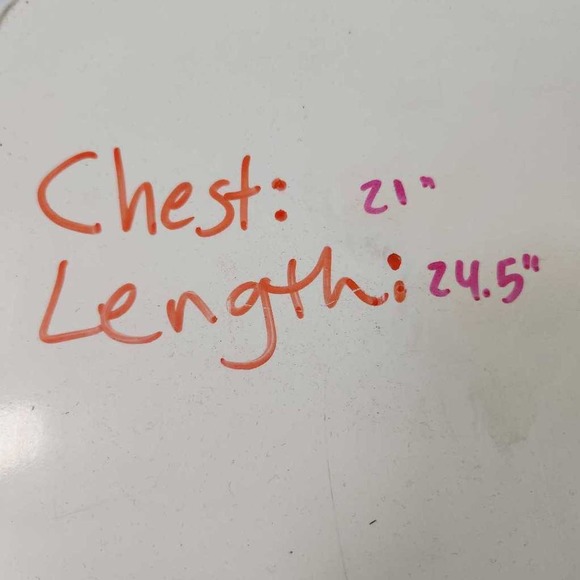 Chest: 21"
Length: 24.5"